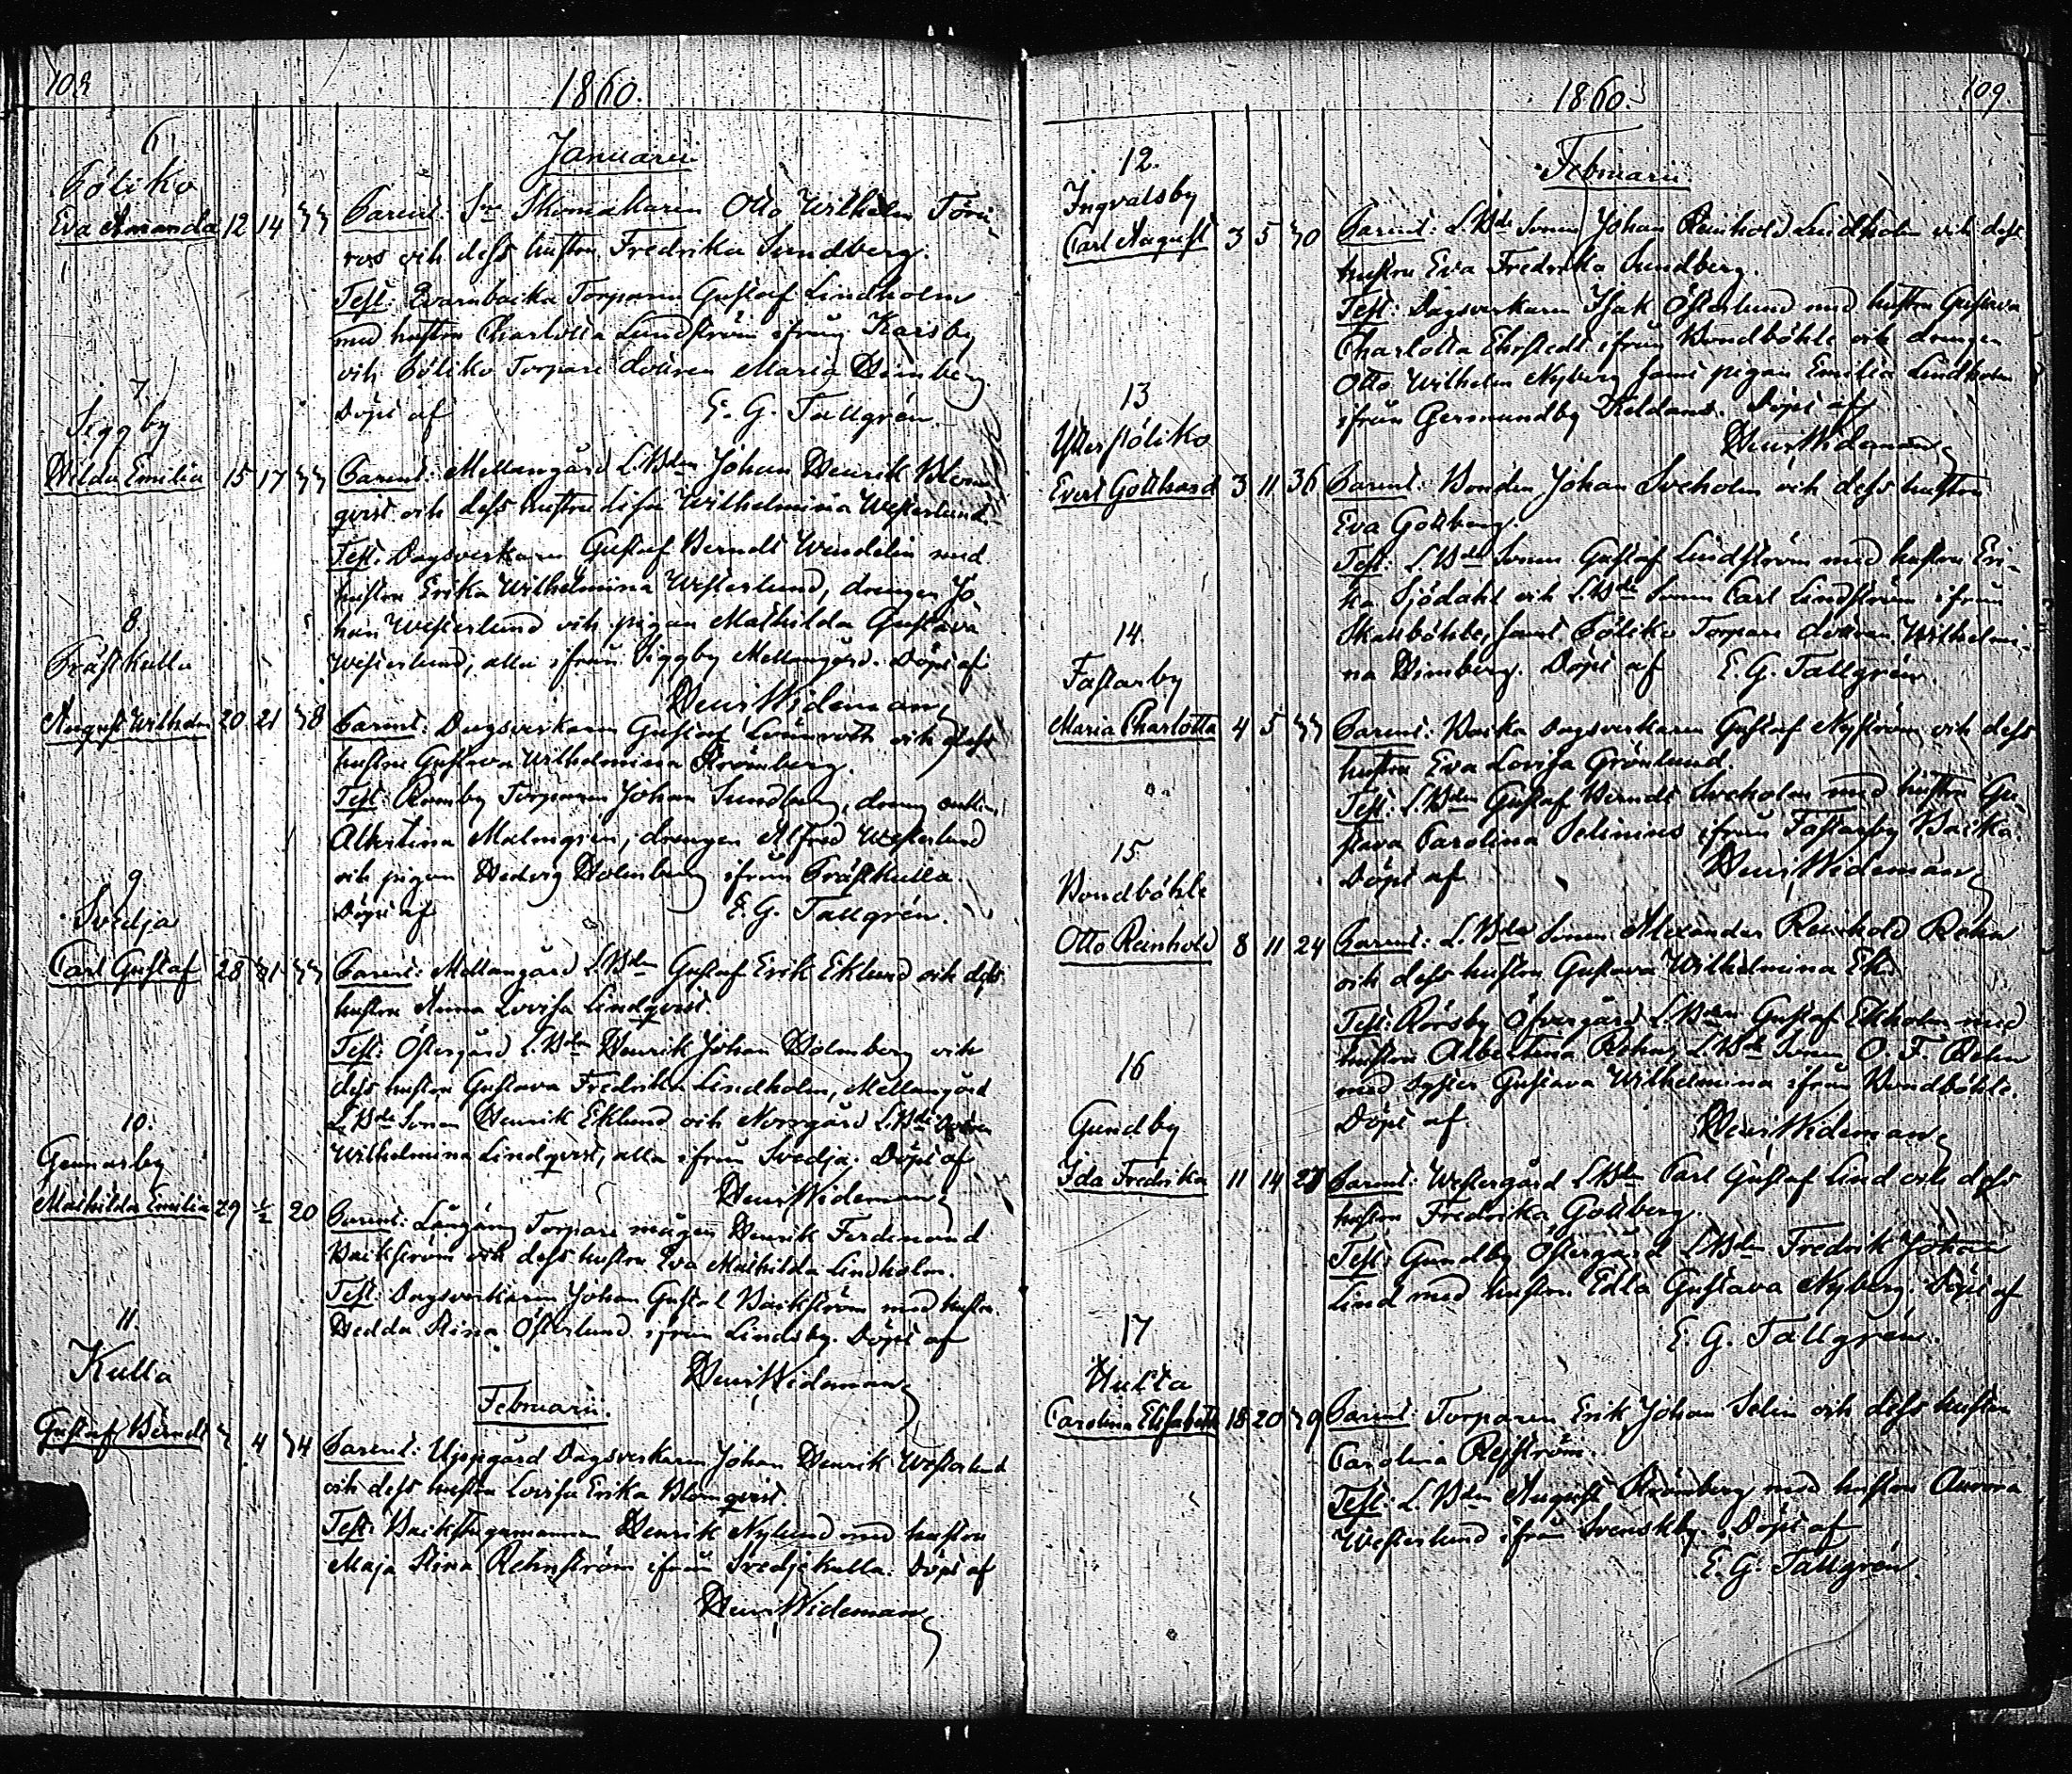 108
1860.
6
Pöliko
Januarii
Eva Amanda 12 14 33 Parent: Sne Skomakaren Otto Wilhelm Törn-
roos och dess hustru Fredrika Sundberg.
Test: Torparen Gustaf Lindholm
med hustru Charlotta Lundström ifrån Karsby
och Pöliko Torpare dottren Maria Himberg
Döpt af E. G. Tallgrén.
7
Siggby
Hilda Emilia 15 17 33 Parent: Mellangård L.Bdn Johan Henrik Blom-
qvist och dess hustru Lisa Wilhelmina Westerlund.
Test: Dagsverkaren Gustaf Berndt Wendelin med
hustru Erika Wilhelmina Westerlund, drengen Jo-
han Westerlund och pigan Mathilda Gustava
Westerlund, alla ifrån Siggby Mellangård. Döpt af
Henr Wideman
8
Prästkulla
August Wilhelm 20 21 38 Parent: Dagsverkaren Gustaf Lönnroth och dess
hustru Gustava Wilhelmina Strömberg.
Test: Ramby Torparen Johan Sundberg, dreng enkan
Albertina Malmgrén, drengen Alfred Westerlund
och pigan Hedvig Holmberg ifrån Prästkulla.
Döpt af E. G. Tallgrén.
9
Svedja
Carl Gustaf 28 31 33 Parent: Mellangård L.Bdn Gustaf Erik Eklund och dess
hustru Anna Lovisa Lindqvist.
Test: Östergård L.Bdn Henrik Johan Holmberg och
dess hustru Gustava Fredrika Lindholm, Mellangård
L.Bde Sonen Henrik Eklund och Norrgård L.Bde dottren
Wilhelmina Lindqvist, alla ifrån Svedja. Döpt af
Henr Wideman
10.
Gennarby
Mathilda Emilia 29 1/2 20 Parent: Långäng Torpare mågen Henrik Ferdinand
Backström och dess hustru Eva Mathilda Lindholm.
Test: Dagsverkaren Johan Gustaf Backström med hustru
Hedda Stina Österlund ifrån Lindsby. Döpt af
Henr Wideman
11.
Kulla
Februarii.
Gustaf Berndt 3 4 34 Parent: Uppgård Dagsverkaren Johan Henrik Westerlund
och dess hustru Lovisa Erika Blomqvist.
Test: Backstugumannen Henrik Nylund med hustru
Maja Stina Rehnström ifrån Svedjekulla. Döpt af
Henr Wideman
1860
109.
12.
Ingvalsby
Februarii.
Carl August 3 5 30 Parent: L.Bde Sonen Johan Reinhold Lindholm och dess
hustru Eva Fredrika Sundberg.
Test: Dagsverkaren Isak Österlund med hustru Gustava
Charlotta Ehrstedt ifrån Bondböhle och drengen
Otto Wilhelm Nyberg samt pigan Emilia Lindholm
ifrån Germundby Döpt af
Henr Wideman
13
Ytterpöliko
Evert Gotthard 3 11 36 Parent: Bonden Johan Sveholm och dess hustru
Eva Gottberg.
Test: L.Bde Sonen Gustaf Lindström med hustru Eri-
ka Sjödahl och L.Bde Sonen Carl Lindström ifrån
Skatböhle, samt Pöliko Torpare dottren Wilhelmi-
na Himberg. Döpt af E. G. Tallgrén.
14.
Fastarby
Maria Charlotta 4 5 33 Parent: Backa Dagsverkaren Gustaf Nyström och dess
hustru Eva Lovisa Grönlund.
Test: L.Bdn Gustaf Berndt Sveholm med hustru Gu-
stava Carolina Selinius ifrån Fastarby Backa.
Döpt af Henr Wideman
15
Bondböhle
Otto Reinhold 8 11 24 Parent: L.Bde Sonen Alexander Reinhold Rehn
och dess hustru Gustava Wilhelmina Ek.
Test: Rösby Öfvergård L.Bden Gustaf Ekholm med
hustru Albertina Rehn, L.Bde Sonen O. F. Rehn
med syster Gustava Wilhelmina ifrån Bondböhle.
Döpt af Henr Wideman
16
Gundby
Ida Fredrika 11 14 27 Parent: Westergård L.Bdn Carl Gustaf Lind och dess
hustru Fredrika Gottberg.
Test: Gundby Östergård L.Bdn Fredrik Johan
Lind med hustru Edla Gustava Nyberg. Döpt af
E. G. Tallgrén.
17
Hulta
Carolina Elisabeth 18 20 39 Parent: Torparen Erik Johan Selin och dess hustru
Carolina
Test: L.Bdn August Strömberg med hustru Aurora
Westerlund ifrån Svenskby. Döpt af
E. G. Tallgrén.